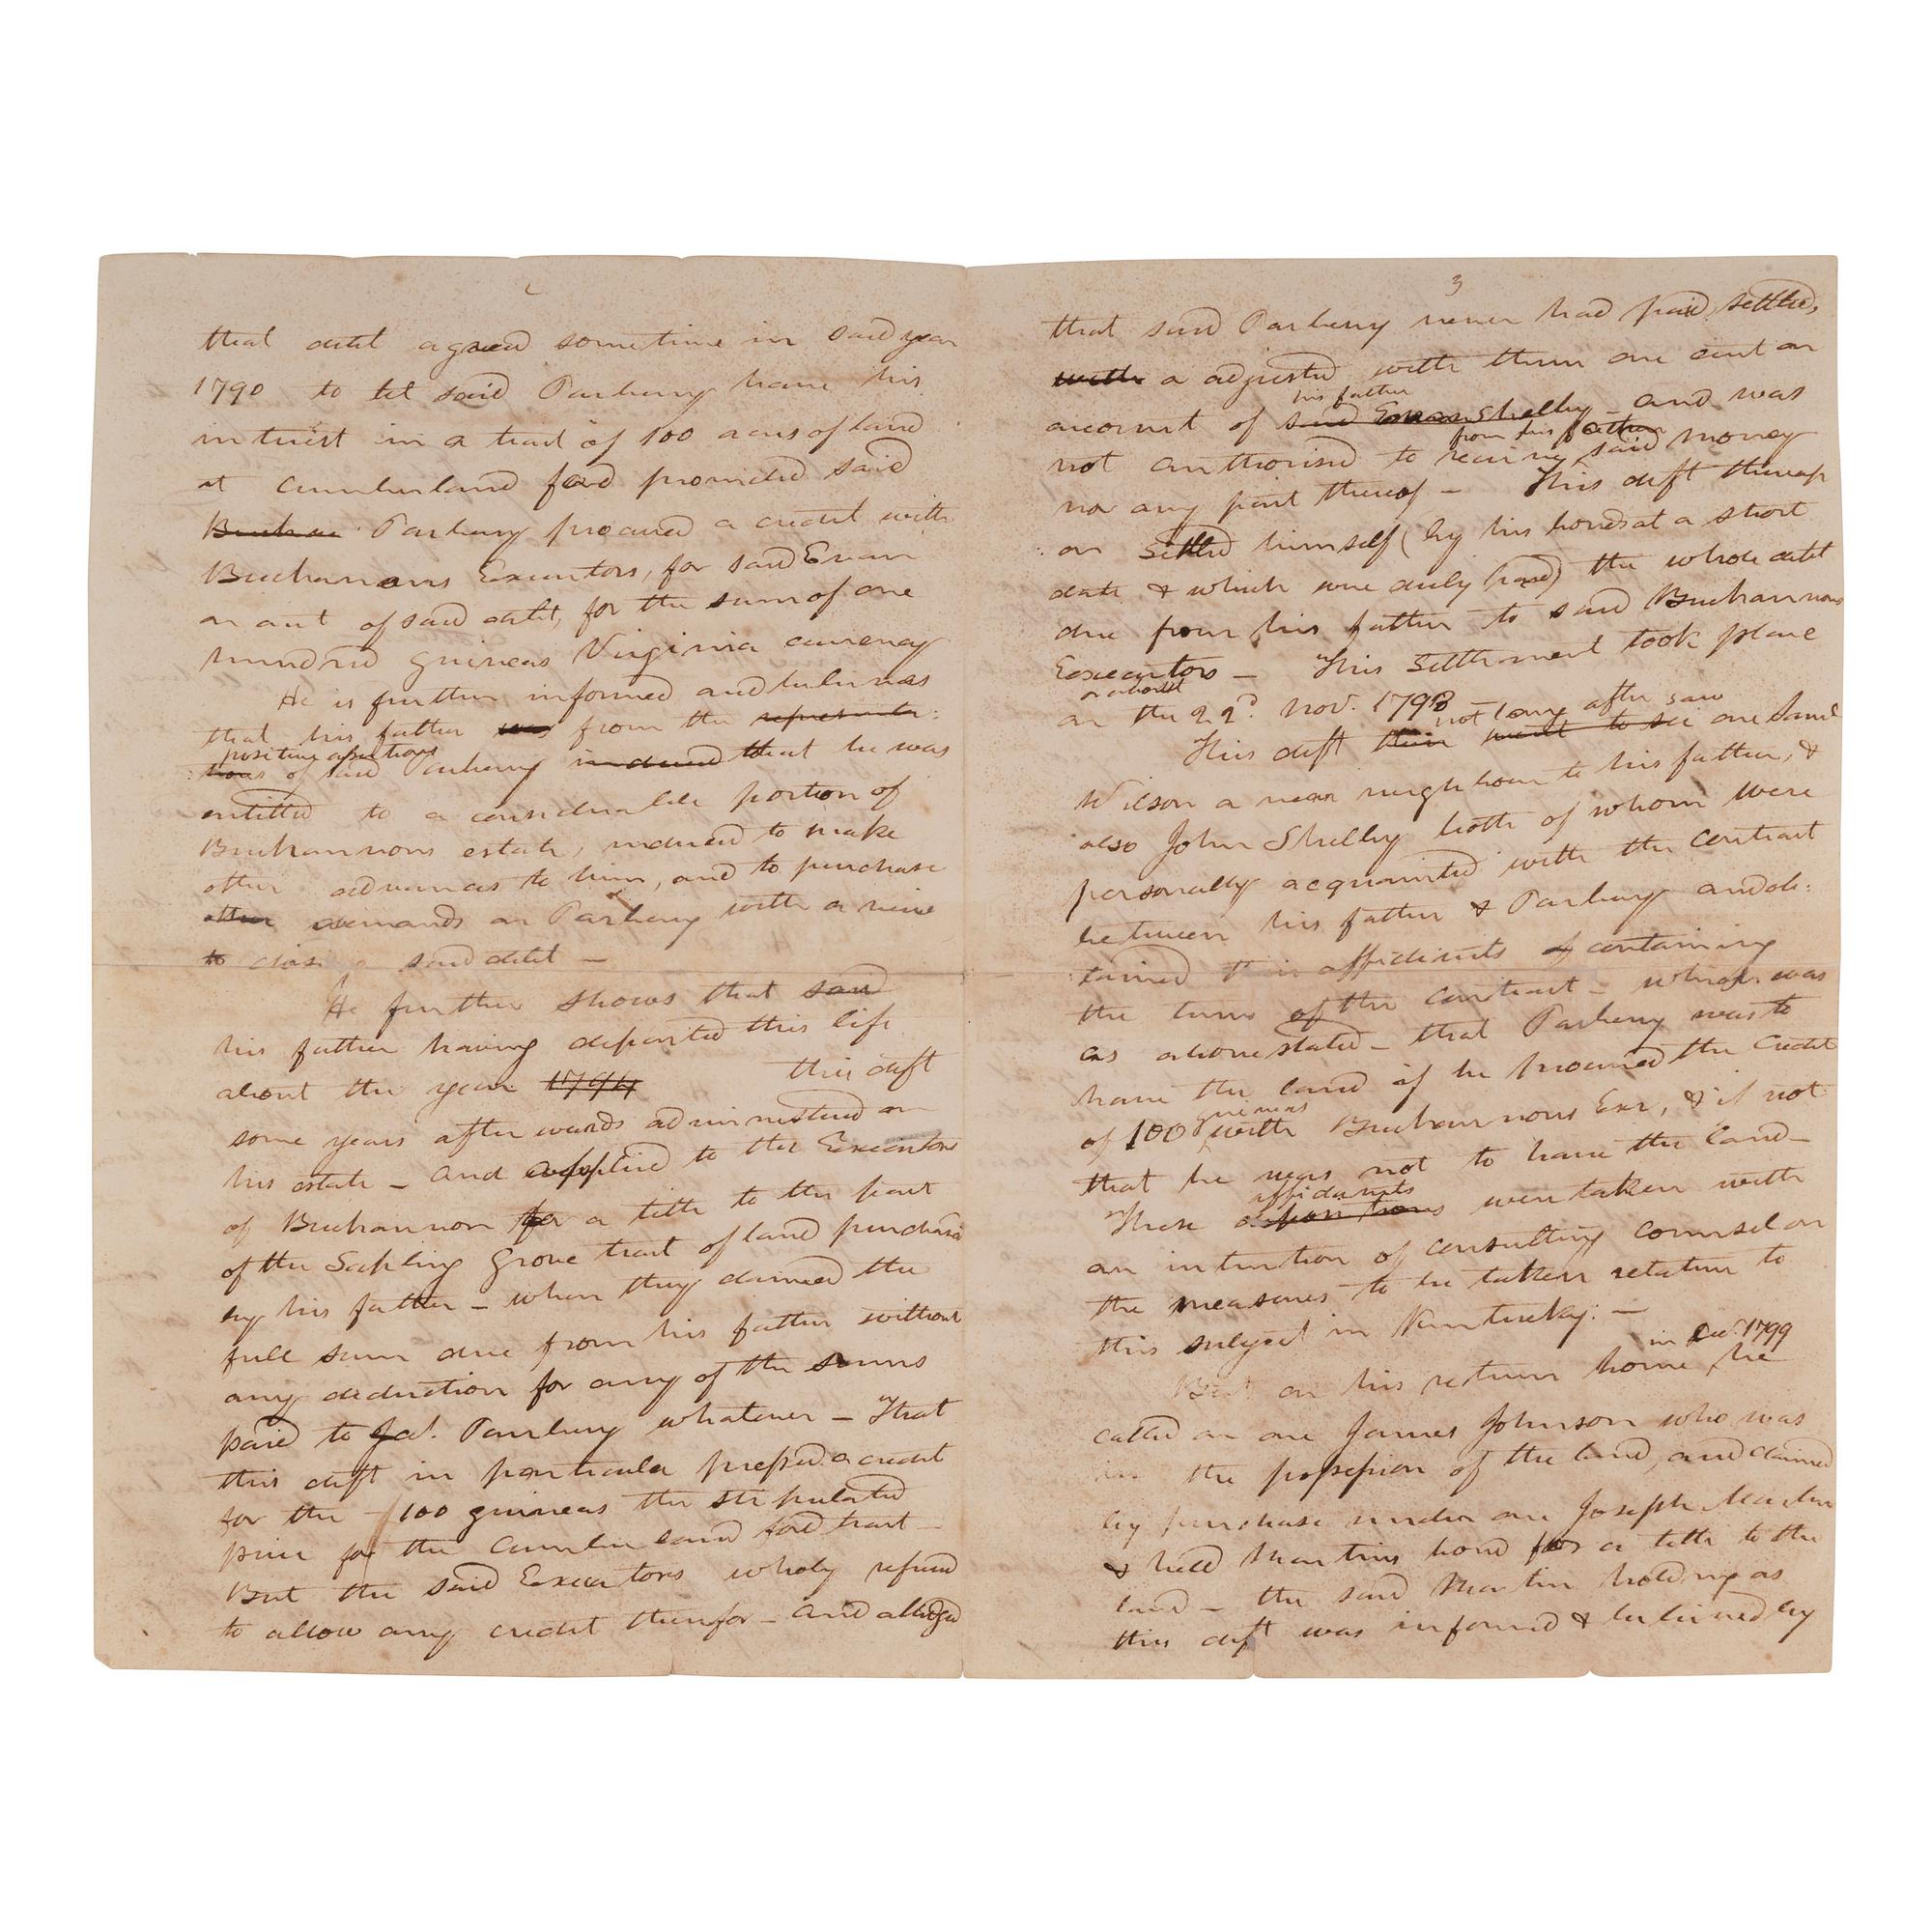 2
that debt agreed sometime in said year
1790 to let said Parberry have his
intrest in a tract of 100 acres of land
at Cumberland ford provided said
Buchan Parberry procured a credit with
Buchanans Executors, for said Evan
on act of said debt, for the sum of one
hundred guineas Virginia currency
He is further informed and believes
that his father was from the representa:
positive assertions
tions of said Parberry induced that he was
entitled to a considerable portion of
Buchannons estate, induced to make
other advances to him, and to purchase
other demands on Parberry with a view
to close said debt –
He further shows that said
his father having departed this life
about the year 1794 this deft
some years afterwards administered on
his estate – and applied to the Executors
of Buchannon for a title to the part
of the Sapling Grove tract of land purchased
by his father – when they claimed the
full sum due from his father without
any deduction for any of the sums
paid to Parberry whatever – That
this deft in particular pressed a credit
for the 100 guineas the stipulated
price for the Cumberland ford tract –
But the said Executors wholy refused
to allow any credit therefor – and alledged
3
that said Parberry never had paid, settled,
with or adjusted with them one cent on
his father
account of said Evan Shelby – and was
from his father
not authorised to receive said money
nor any part thereof – This deft thereup
: on settled himself (by his bonds at a short
date & which were duly paid) the whole debt
due from his father to said Buchannons
Executors – This settlement took place
or about
on the 22d. Novr. 1798
not long after saw
This deft then went to see one Saml
Wilson a near neighbour to his father, &
also John Shelby both of whom were
personally acquainted with the contract
between his father & Parberry and ob:
:tained their affidavits containing
the terms of the contract – which was
as above stated – that Parberry was to
have the land if he procured the credit
guineas
of 100 with Buchannons Exr, & if not
that he was not to have the land –
affidavits
These depositions were taken with
an intention of consulting counsel on
the measures to be taken relative to
this subject in Kentucky. –
in Dec. 1799
But on his return home, he
called on one James Johnson who was
in the possession of the land, and claimed
by purchase under one Joseph Martin
& held Martins bond for a title to the
land – the said Martin holding as
this deft was informed & believed by